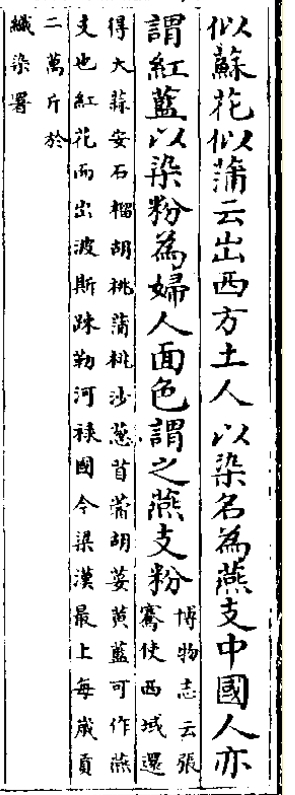 似蘇花似蒲云出西方土人以染名為燕支中國人亦
謂紅藍以染粉為婦人面色謂之燕支粉
博物志云張
騫使西域還
得大蒜安石榴胡桃蒲桃沙葱苜蓿胡荽黃藍可作燕
支也紅花而出波斯踈勒河祿國今梁漢最上每歲貢
二萬斤於
織染署